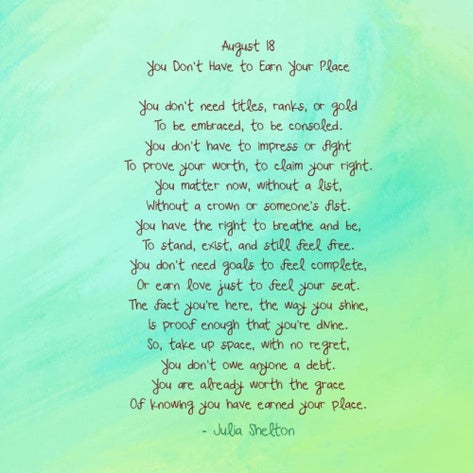 August 18
You Don't Have to Earn Your Place
You don't need titles, ranks, or gold
To be embraced, to be consoled.
You don't have to impress or fight
To prove your worth, to claim your right.
You matter now, without a list,
Without a crown or someone's fist.
You have the right to breathe and be,
To stand, exist, and still feel free.
You don't need goals to feel complete,
Or earn love just to feel your seat.
The fact you're here, the way you shine,
Is proof enough that you're divine.
So, take up space, with no regret,
You don't owe anyone a debt.
You are already worth the grace
Of knowing you have earned your place.
- Julia Shelton